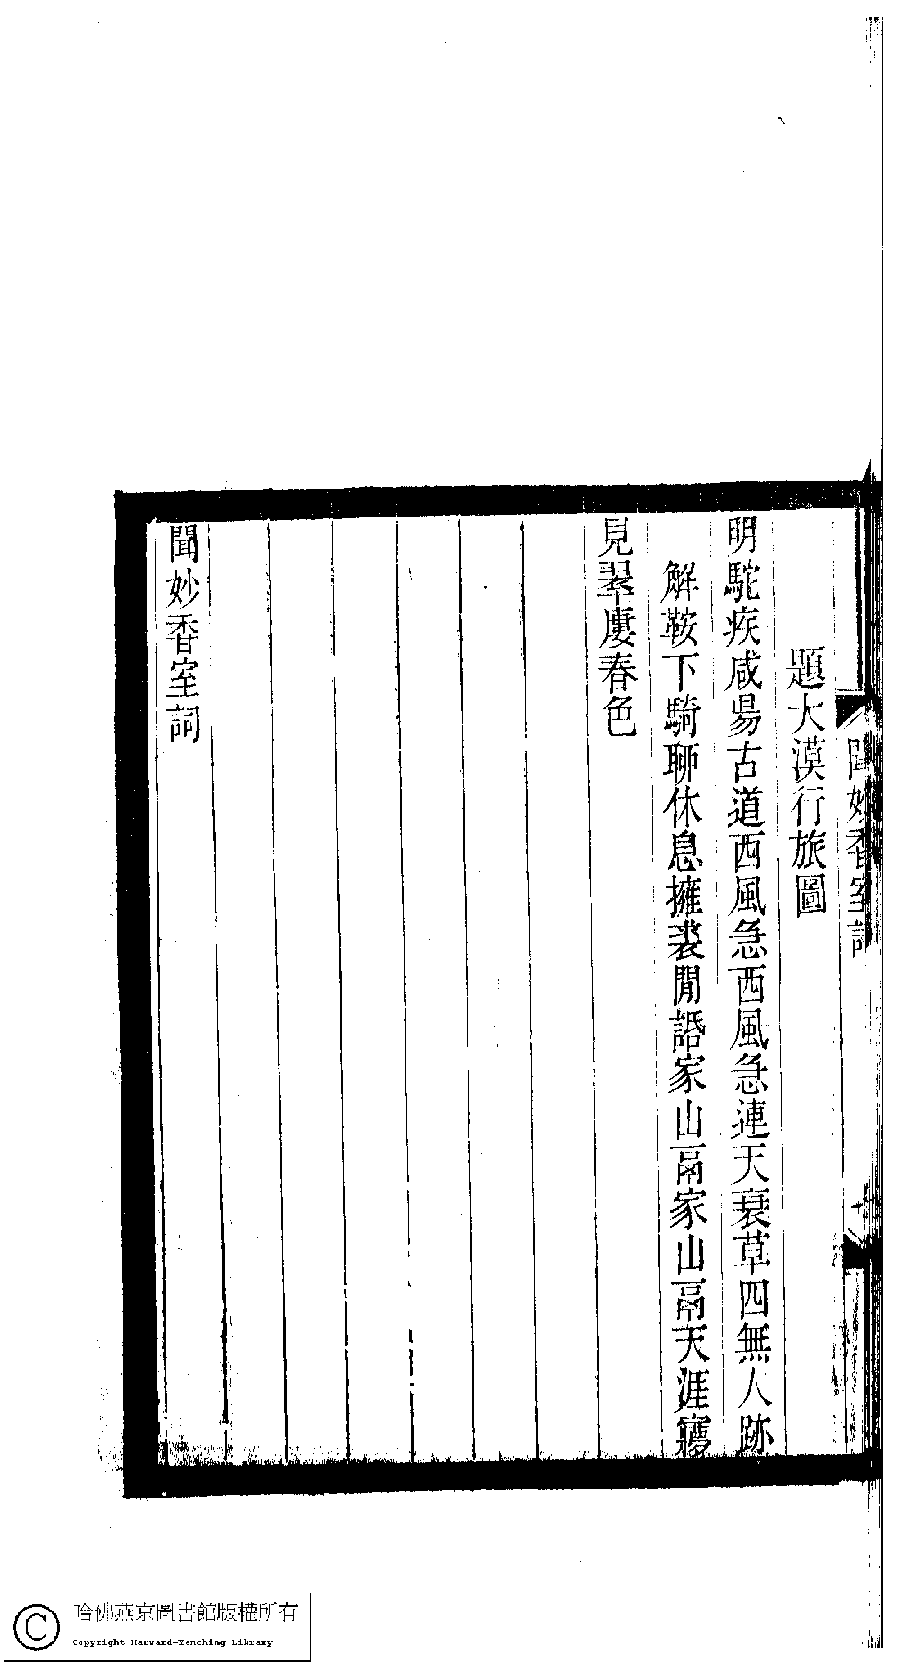 聞妙香室詞
題大漠行旅圖
明駝疾咸昜古道西風急西風急連天衰草四無人跡
解鞍下騎聊休息擁裘閒䛡家山鬲家山鬲天涯㝱
見翠廔春色
聞妙香室詞
哈佛燕京圖書館版權所有
Copyright Harvard-Yenching Library